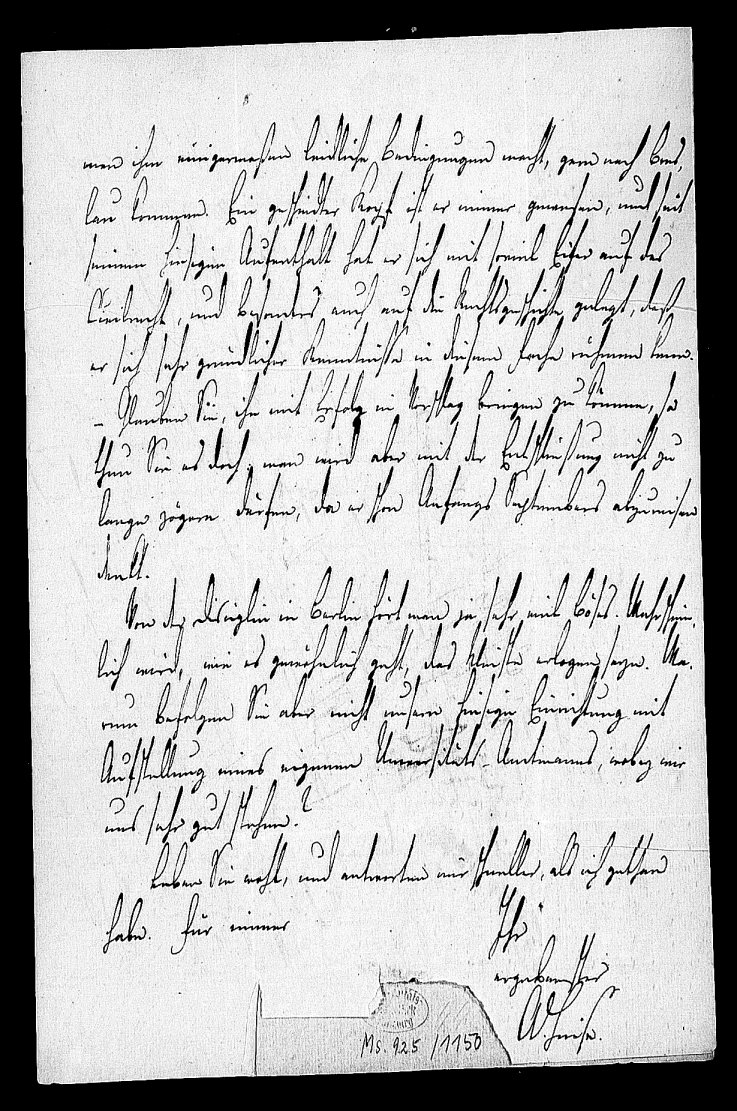 man ihm einigermaßen leidliche Bedingungen macht, gern nach Bres,
lau kommen. Ein gescheidter Kopf ist er immer gewesen, und seit
seinem hiesigen Aufenthalt hat er sich mit soviel Eifer auf das
Civilrecht, und besonders auch auf die Rechtsgeschichte gelegt, daß
er sich sehr gründlicher Kenntnisse in diesem Fache rühmen kann.
– Glauben Sie, ihn mit Erfolg in Vorschlag bringen zu können, so
thun Sie es doch, man wird aber mit der Entschließung nicht zu
lange zögern dürfen, da er schon Anfangs Septembers abzureisen
denkt.
Von der Disciplin in Berlin hört man ja sehr viel böses. Wahrschein,
lich wird, wie es gewöhnlich geht, das Meiste erlogen seyn. Wa,
rum befolgen Sie aber nicht unsere hiesige Einrichtung mit
Aufstellung eines eigenen Universitäts-Amtmanns, wobey wir
uns sehr gut stehen?
Leben Sie wohl, und antworten mir schneller, als ich gethan
habe. Für immer
Ihr
ergebenster
Ms. 925 /1150